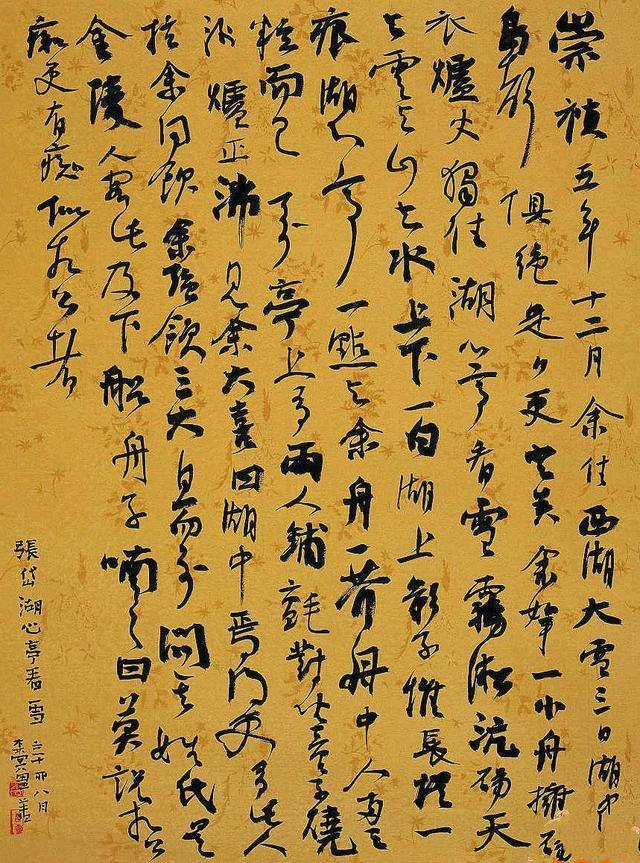 崇禎五年十二月余住西湖大雪三日湖中
鳥聲俱絕是夕更定矣余拏一小舟擁毳
衣爐火獨往湖心亭看雪霧淞沆碭天
與雲與山與水上下一白湖上影子惟長堤一
痕湖心亭一點與余舟一芥舟中人兩三
粒而已到亭上有兩人鋪氈對坐一童子燒
酒爐正沸見余大喜曰湖中焉得更有此人
拉余同飲余強飲三大白而別問其姓氏是
金陵人客此及下船舟子喃喃曰莫說相公
癡更有癡似相公者
張岱湖心亭看雪
八月